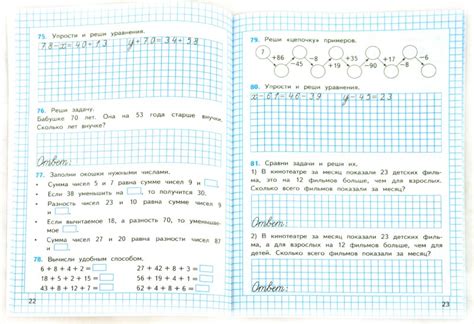 75. Упрости и реши уравнения.
78-x=40+13 y+70=34+58
76. Реши задачу.
Бабушке 70 лет. Она на 53 года старше внучки.
Сколько лет внучке?
Ответ:
77. Заполни окошки нужными числами.
• Сумма чисел 5 и 7 равна сумме чисел 9 и
• Если 38 уменьшить на , то получится 30.
• Разность чисел 23 и 10 равна сумме чисел 9 и
• Если вычитаемое 18, а разность 70, то уменьшаемое
• Сумма чисел 27 и 20 равна разности чисел 87 и
78. Вычисли удобным способом.
6 + 8 + 4 + 2 = 27 + 42 + 8 + 3 =
18 + 5 + 2 + 15 = 56 + 19 + 4 + 1 =
43 + 8 + 12 + 7 = 62 + 4 + 8 + 6 =
22
79. Реши «цепочку» примеров.
+86 +35 +19 +38 -6
-45 -90 -17 -8
80. Упрости и реши уравнения.
y-45=23
81. Сравни задачи и реши их.
1) В кинотеатре за месяц показали 23 детских фильма, это на 12 фильмов больше, чем для взрослых.
Сколько всего фильмов показали за месяц?
Ответ:
2) В кинотеатре за месяц показали 23 детских фильма, а для взрослых на 12 фильмов больше, чем для
детей. Сколько всего фильмов показали за месяц?
Ответ:
23